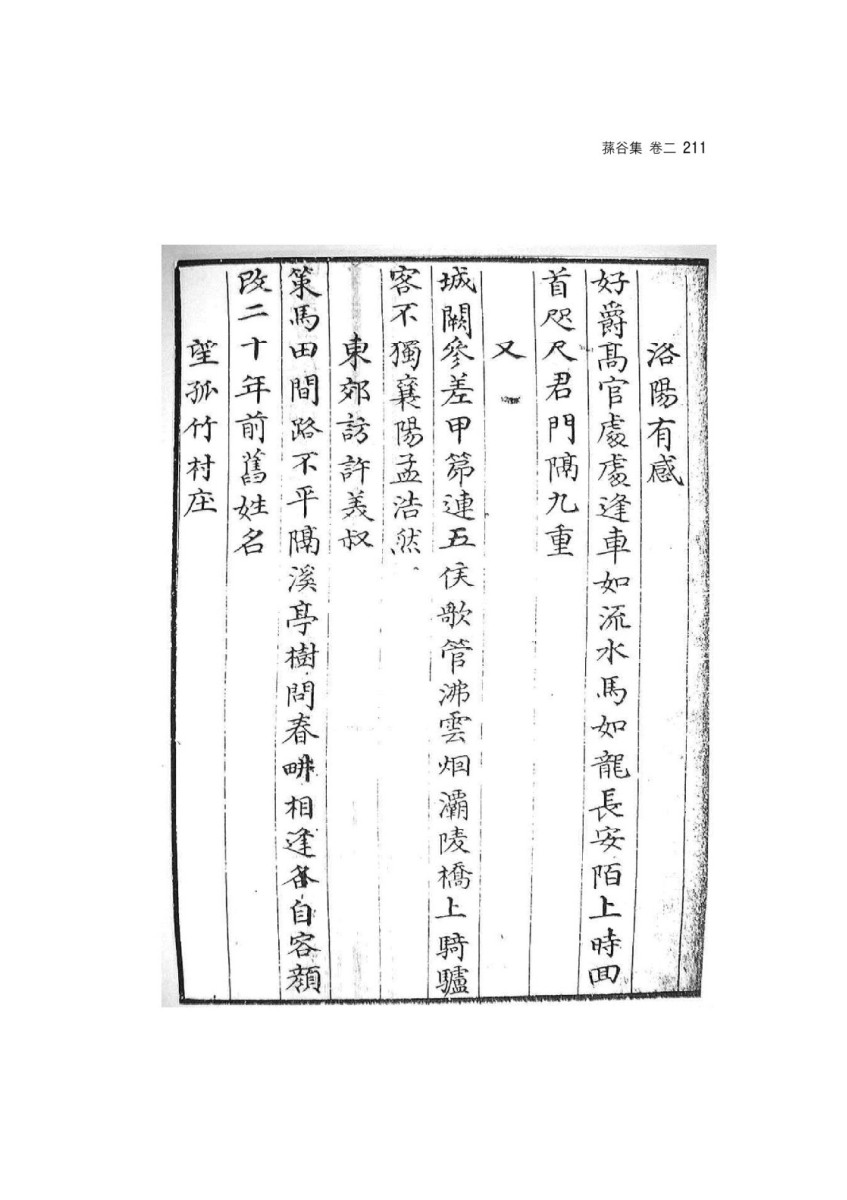 蓀谷集 卷二 211
洛陽有感
好爵髙官處處逢車如流水馬如龍長安陌上時回
首咫尺君門隔九重
又
城闕參差甲第連五侯歌管沸雲烟灞陵橋上騎驢
客不獨襄陽孟浩然
東郊訪許美叔
策馬田間路不平隔溪亭樹問春畊相逢各自容顏
改二十年前舊姓名
望孤竹村庄